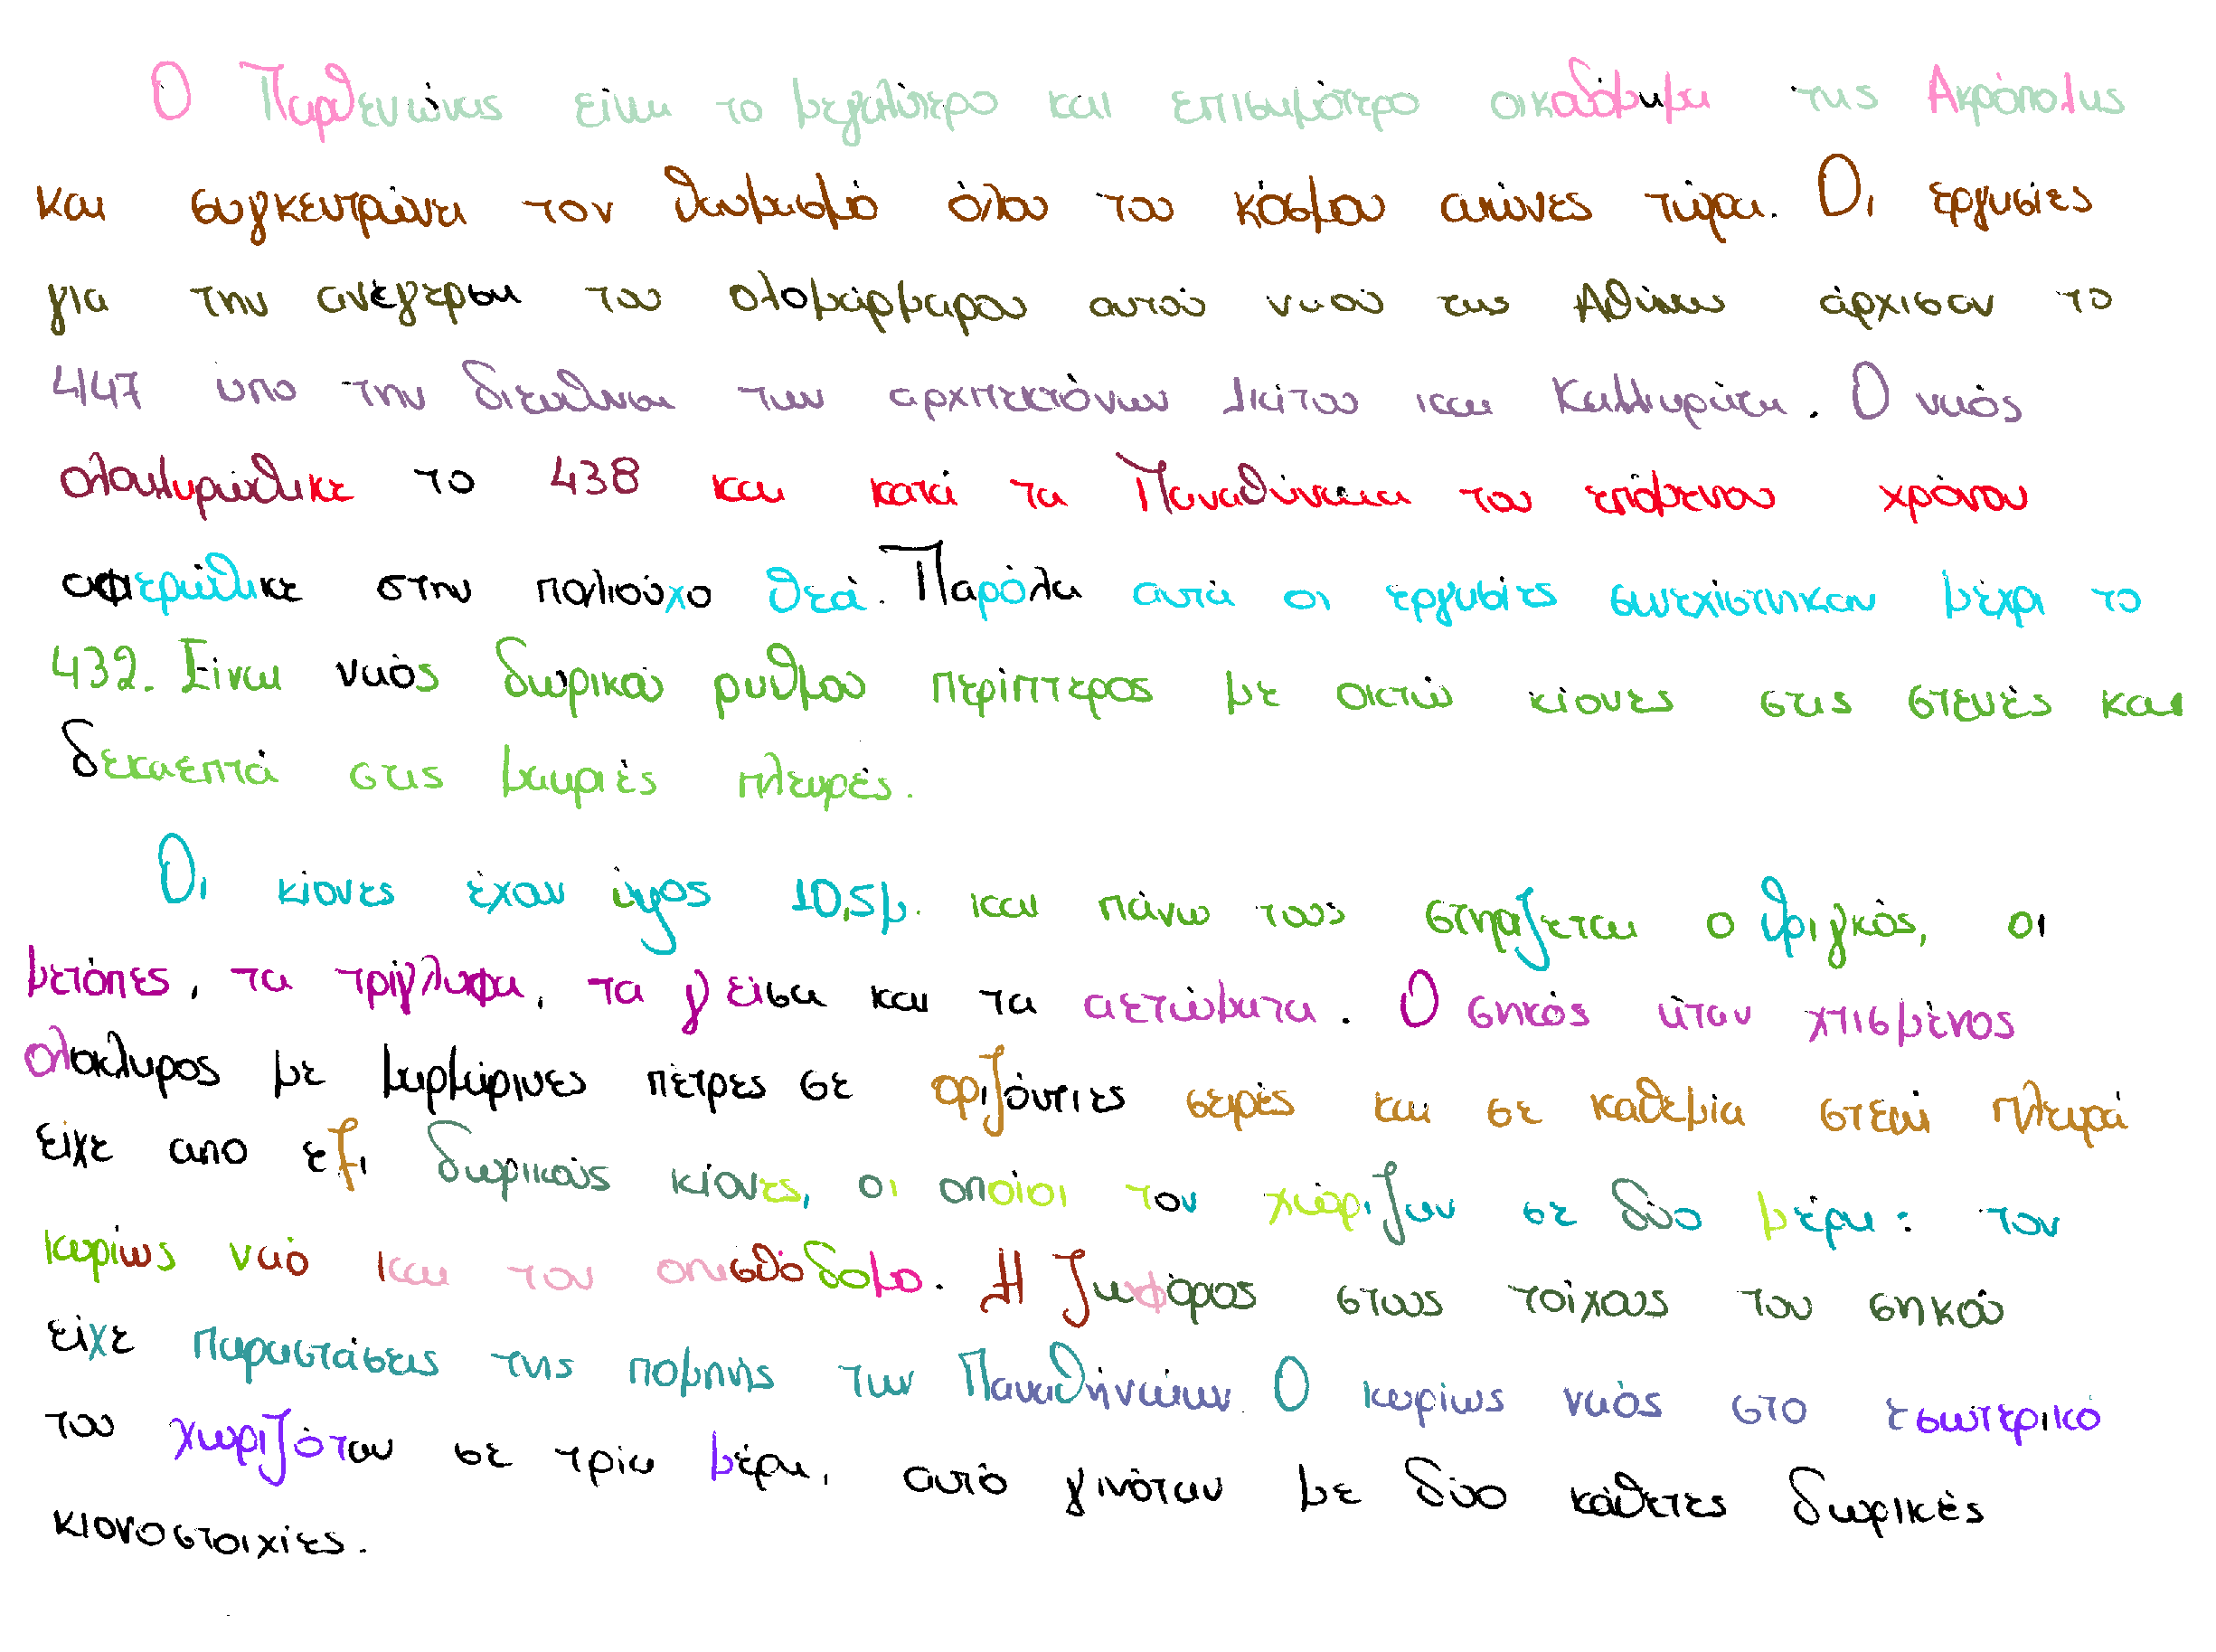 Ο Παρθενώνας είναι το μεγαλύτερο και επισημότερο οικοδόμημα της Ακρόπολης
και συγκεντρώνει τον θαυμασμό όλου του κόσμου αιώνες τώρα. Οι εργασίες
για την ανέγερση του ολομάρμαρου αυτού ναού της Αθήνας άρχισαν το
447 υπο την διεύθυνση των αρχιτεκτόνων Ικτίνου και Καλλικράτη. Ο ναός
ολοκληρώθηκε το 438 και κατά τα Παναθήναια του επόμενου χρόνου
αφιερώθηκε στην πολιούχο θεά. Παρόλα αυτά οι εργασίες συνεχίστηκαν μέχρι το
432. Είναι ναός δωρικού ρυθμού περίπτερος με οκτώ κίονες στις στενές και
δεκαεπτά στις μακριές πλευρές.
Οι κίονες έχουν ύψος 10,5μ. και πάνω τους στηρίζεται ο θριγκός, οι
μετόπες, τα τρίγλυφα, τα γείσα και τα αετώματα. Ο σηκός ήταν χτισμένος
ολόκληρος με μαρμάρινες πέτρες σε οριζόντιες σειρές και σε καθεμία στενή πλευρά
είχε απο έξι δωρικούς κίονες, οι οποίοι τον χώριζαν σε δύο μέρη: τον
κυρίως ναό και τον οπισθόδομο. Η ζωφόρος στους τοίχους του σηκού
είχε παραστάσεις της πομπής των Παναθηναίων. Ο κυρίως ναός στο εσωτερικό
του χωριζόταν σε τρία μέρη, αυτό γινόταν με δύο κάθετες δωρικές
κιονοστοιχίες.